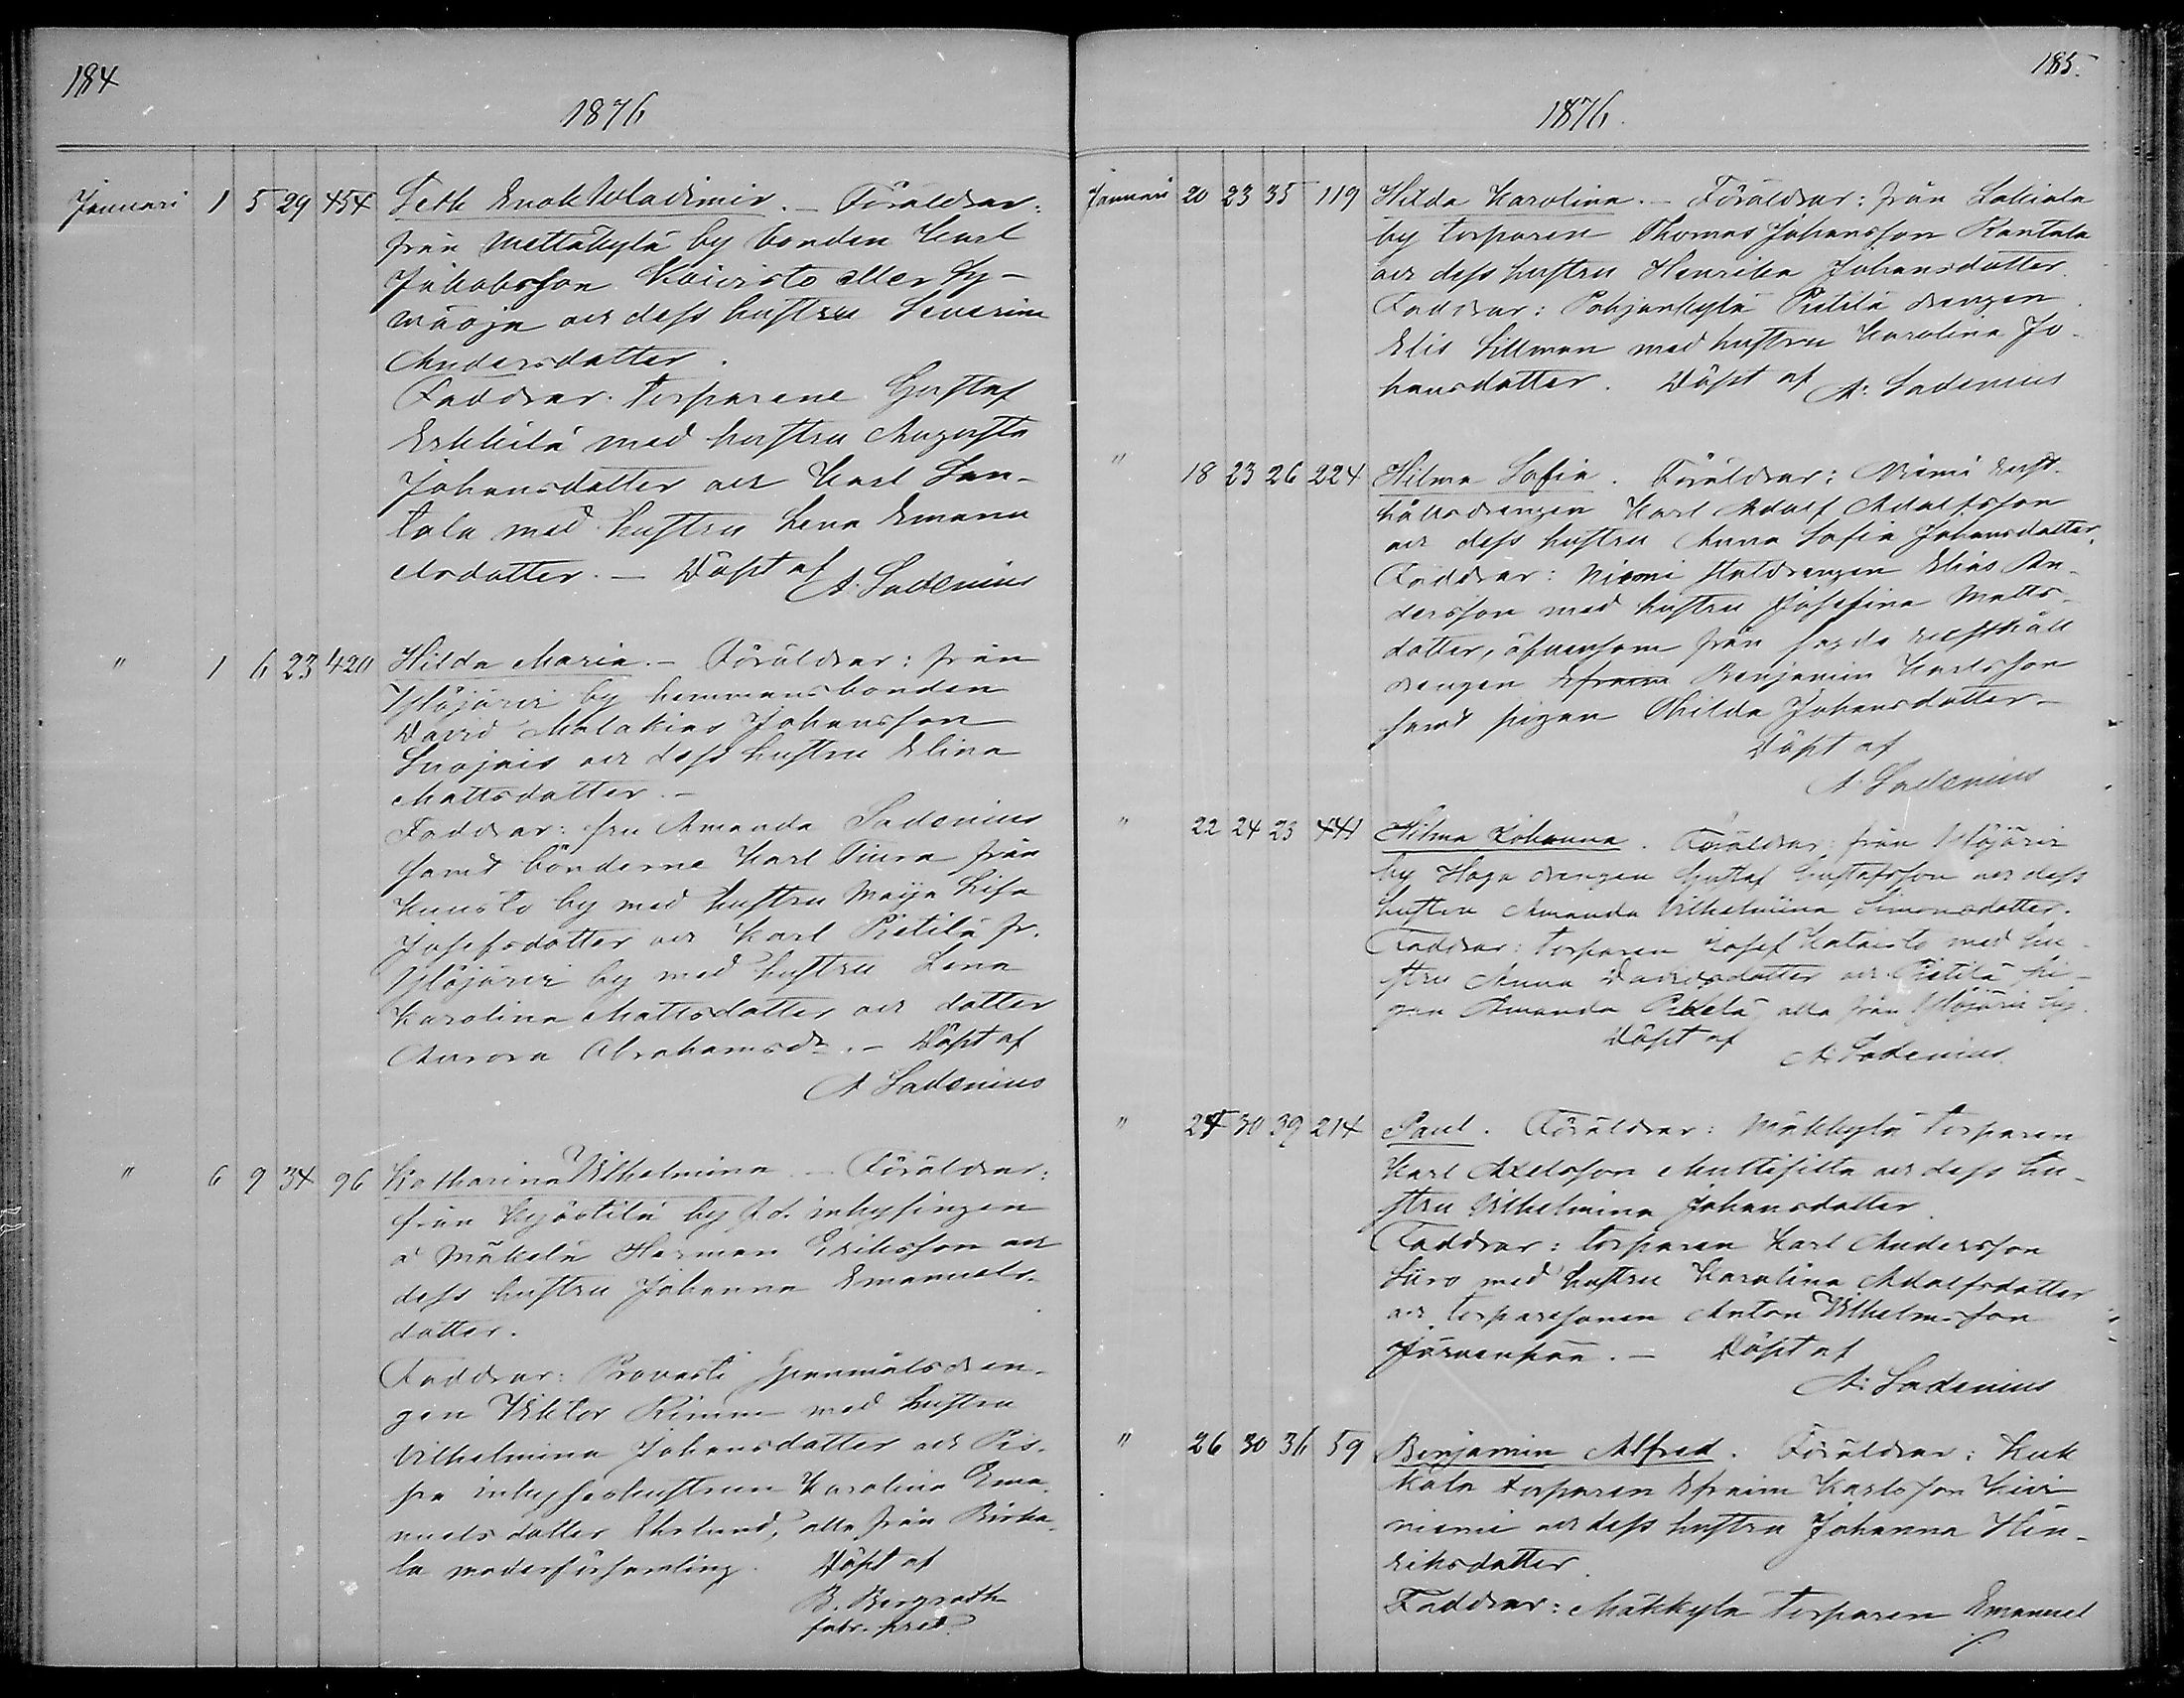 184
1876
Januari 1 5 29 454 Seth Enok Wladimir. – Föräldrar:
från Mettäkylä by bonden Karl
Jakobsson Koivisto eller Sy-
väoja och dess hustru Severina
Andersdotter.
Faddrar: torparene Gustaf
Erkkilä med hustru Augusta
Johansdotter och Karl Lan-
tala med hustru Lena Emanu
elsdotter. – Döpt af
A. Sadenius
" 1 6 23 420 Hilda Maria. – Föräldrar: från
Ylöjärvi by hemmansbonden
David Malakias Johansson
Snojnis och dess hustru Elina
Mattsdotter. –
Faddrar: fru Amanda Sadenius
samt bönderne Karl Tiura från
Kuusto by med hustru Maja Lisa
Josefsdotter och Karl Pietilä fr.
Ylöjärvi by med hustru Lena
Karolina Mattsdotter och dotter
Aurora Abrahamsdr. – Döpt af
A Sadenius
" 6 9 34 96 Katharina Vilhelmina. – Föräldrar:
från Kyöstilä by f.d. inhysingen
å Mäkelä Herman Eriksson och
dess hustru Johanna Emanuels-
dotter.
Faddrar: Provasti spanmålsdren-
gen Viktor Rimmi med hustru
Vilhelmina Johansdotter och Pis-
pa inhyseshustrun Karolina Ema-
nuelsdotter Ekelund, alla från Birka-
la moderförsamling. Döpt af
B. Bergroth
fabr. pred.
185.
1876.
Januari 20 23 35 119 Hilda Karolina. – Föräldrar: från Lakiala
by torparen Thomas Johansson Rantala
och dess hustru Henrika Johansdotter.
Faddrar: Pohjankylä Pietilä drengen
Elis Lillman med hustru Karolina Jo-
hansdotter. Döpt af A: Sadenius
" 18 23 26 224 Hilma Sofia. Föräldrar: Niemi rust-
hållsdrengen Karl Adolf Adolfsson
och dess hustru Anna Sofia Johansdotter.
Faddrar: Niemi stalldrengen Elias An-
dersson med hustru Josefina Matts-
dotter, äfvensom från sagde rusthåll
drengen Efraim Benjamin Karlsson
samt pigan Thilda Johansdotter. –
Döpt af
A. Sadenius
" 22 24 23 441 Hilma Johanna. Föräldrar: från Ylöjärvi
by Haga drengen Gustaf Gustafsson och dess
hustru Amanda Vilhelmina Simonsdotter.
Faddrar: torparen Josef Kataisto med hu-
stru Anna Davidsdotter och Pietilä pi-
gan Amanda Pietilä, alla från Ylöjärvi by.
Döpt af
A. Sadenius.
" 24 30 39 214 Paul. Föräldrar: Mäkkylä torparen
Karl Axelsson Muttisilta och dess hu-
stru Vilhelmina Johansdotter.
Faddrar: torparen Karl Andersson
Siiro med hustru Karolina Adolfsdotter
och torparesonen Anton Vilhelmsson
Järvenpää. – Döpt af
A: Sadenius
" 26 30 36 59 Benjamin Alfred. Föräldrar: Kek
kola torparen Efraim Karlsson Kivi-
niemi och dess hustru Johanna Hen-
riksdotter.
Faddrar: Mäkkylä torparen Emanuel